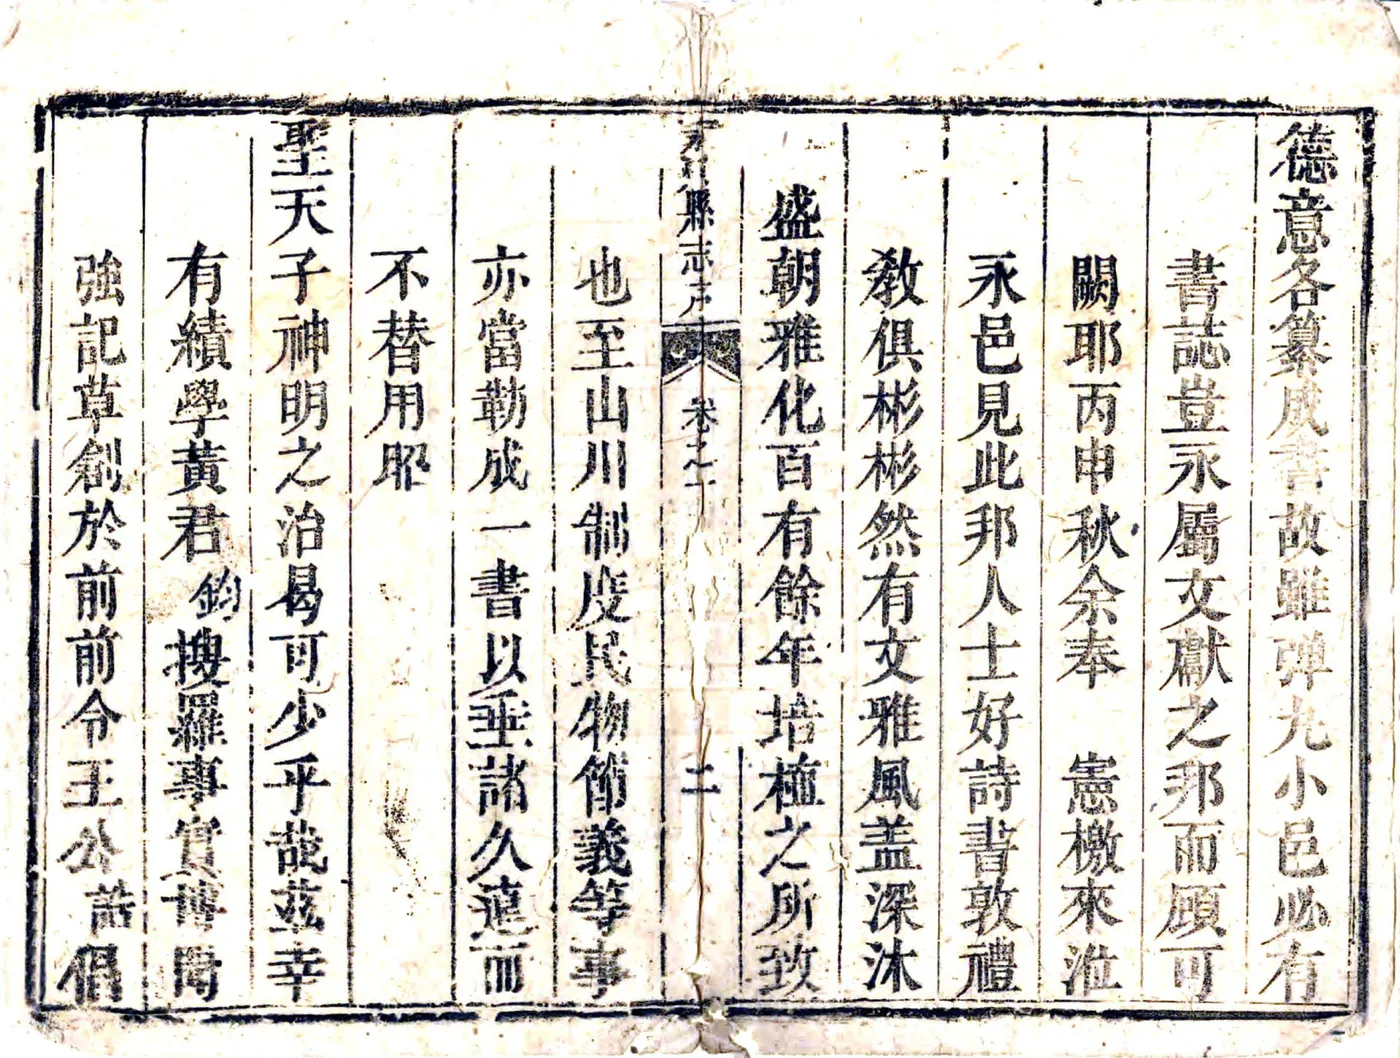 德意各纂成書故雖彈丸小邑必有
書誌豈永屬文獻之邦而顧可
闕耶丙申秋余奉　憲檄來涖
永邑見此邦人士好詩書敦禮
教俱彬彬然有文雅風盖深沐
盛朝雅化百有餘年培植之所致
縣志序　卷之一　二
也至山川制度民物節義等事
亦當勒成一書以垂諸久遠而
不替用昭
聖天子神明之治曷可少乎哉茲幸
有績學黃君鈞搜羅事實博聞
強記草創於前前令王公誥倡